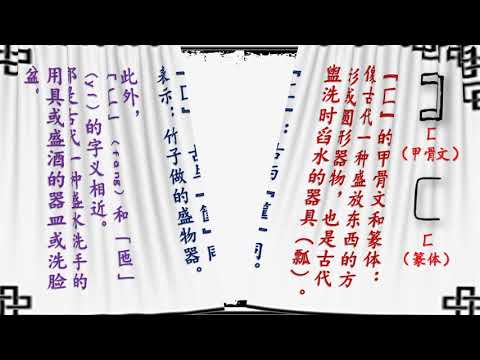 匚
（甲骨文）
匚
（篆体）
『匚』的甲骨文和篆体：
像古代一种盛放东西的方
形或圆形器物，也是古代
盥洗时舀水的器具（瓢）。
同。
表示：竹子做的盛物器。
此外，
「匚」（fāng）和「匜」
（yí）的字义相近。
都是古代一种盛水洗手的
用具或盛酒的器皿或洗脸
盆。